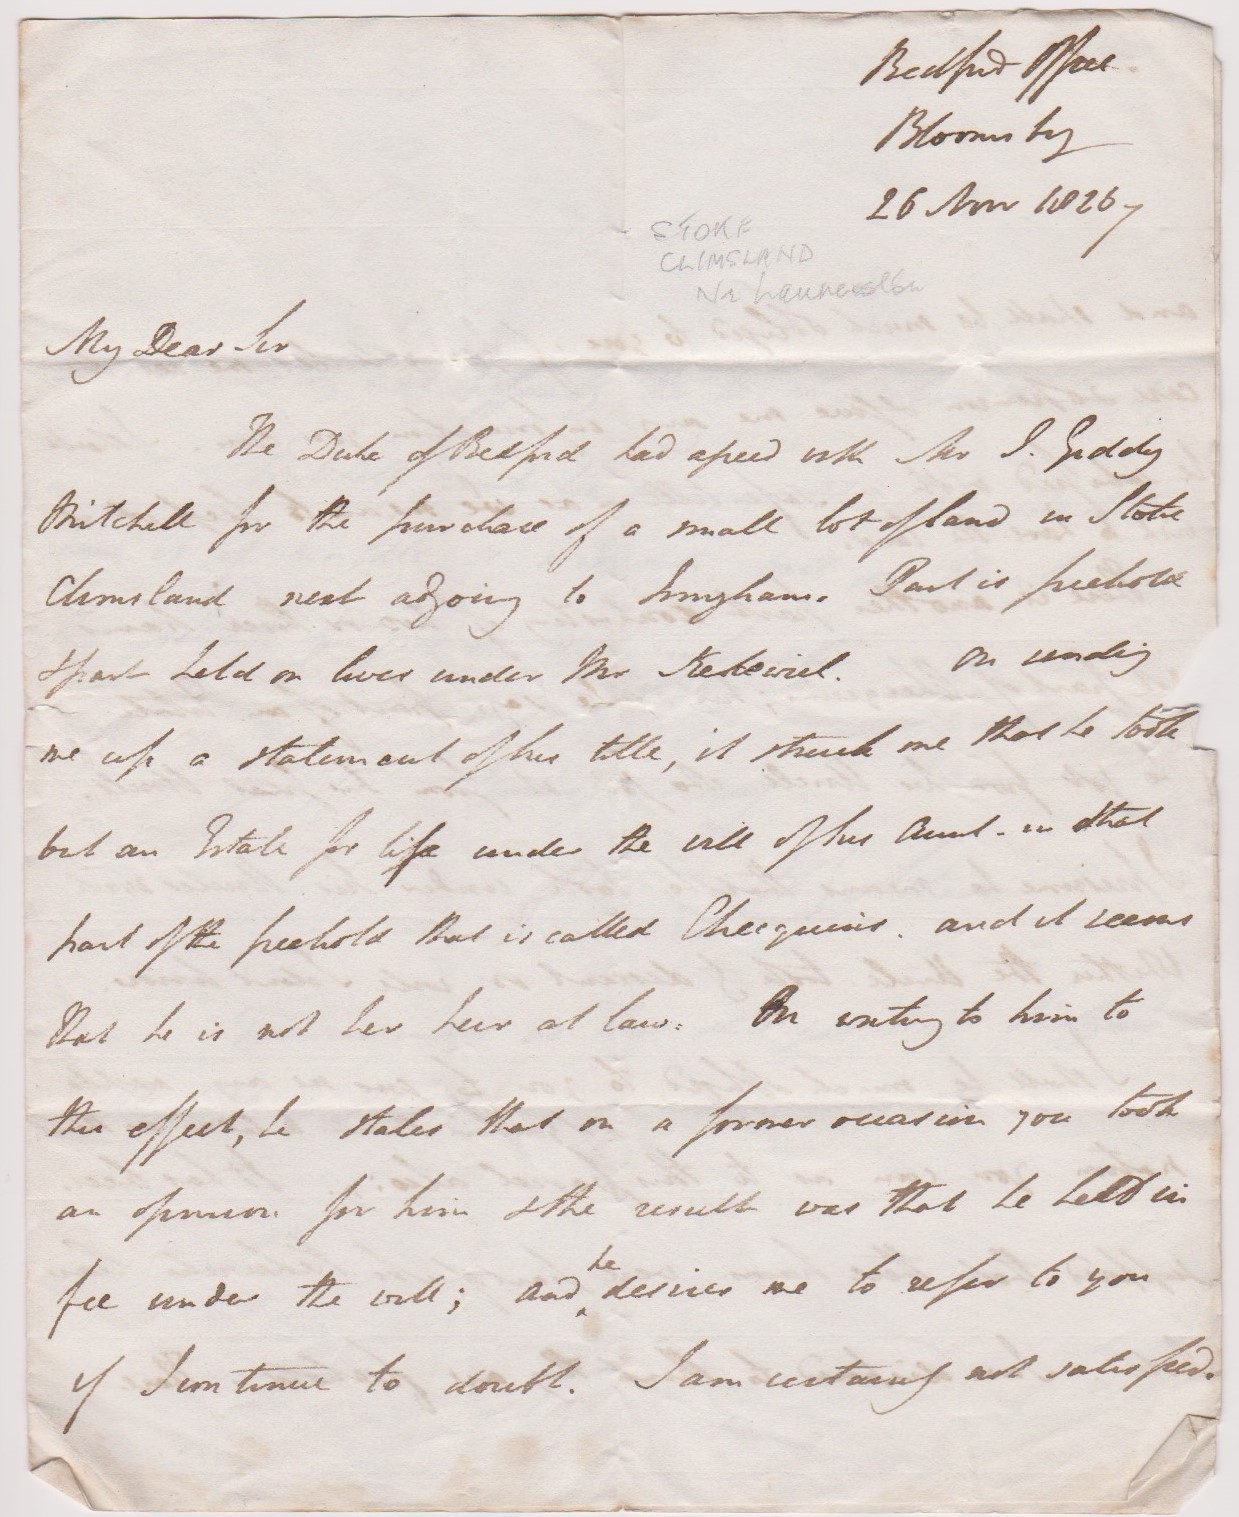 Bedford Office
Bloomsby
26 Nov 1826
STOKE
CLIMSLAND
Nr Launceston
My Dear Sir
The Duke of Bedford had agreed with Mr J. Giddy
Mitchell for the purchase of a small lot of land in Stoke
Climsland next adjoing to Inngham. Part is freehold
& part held on lives under Mr Kekewich. On sending
me up a statement of his title, it struck me that he took
but an Estate for life under the will of his Aunt - in that
part of the freehold that is called Chequins. and it seems
that he is not her heir at law. On writing to him to
this effect, he states that on a former occasion you took
an opinion for him & the result was that he held in
fee under the will; and he desires me to refer to you
if I continue to doubt. I am certainly not satisfied.